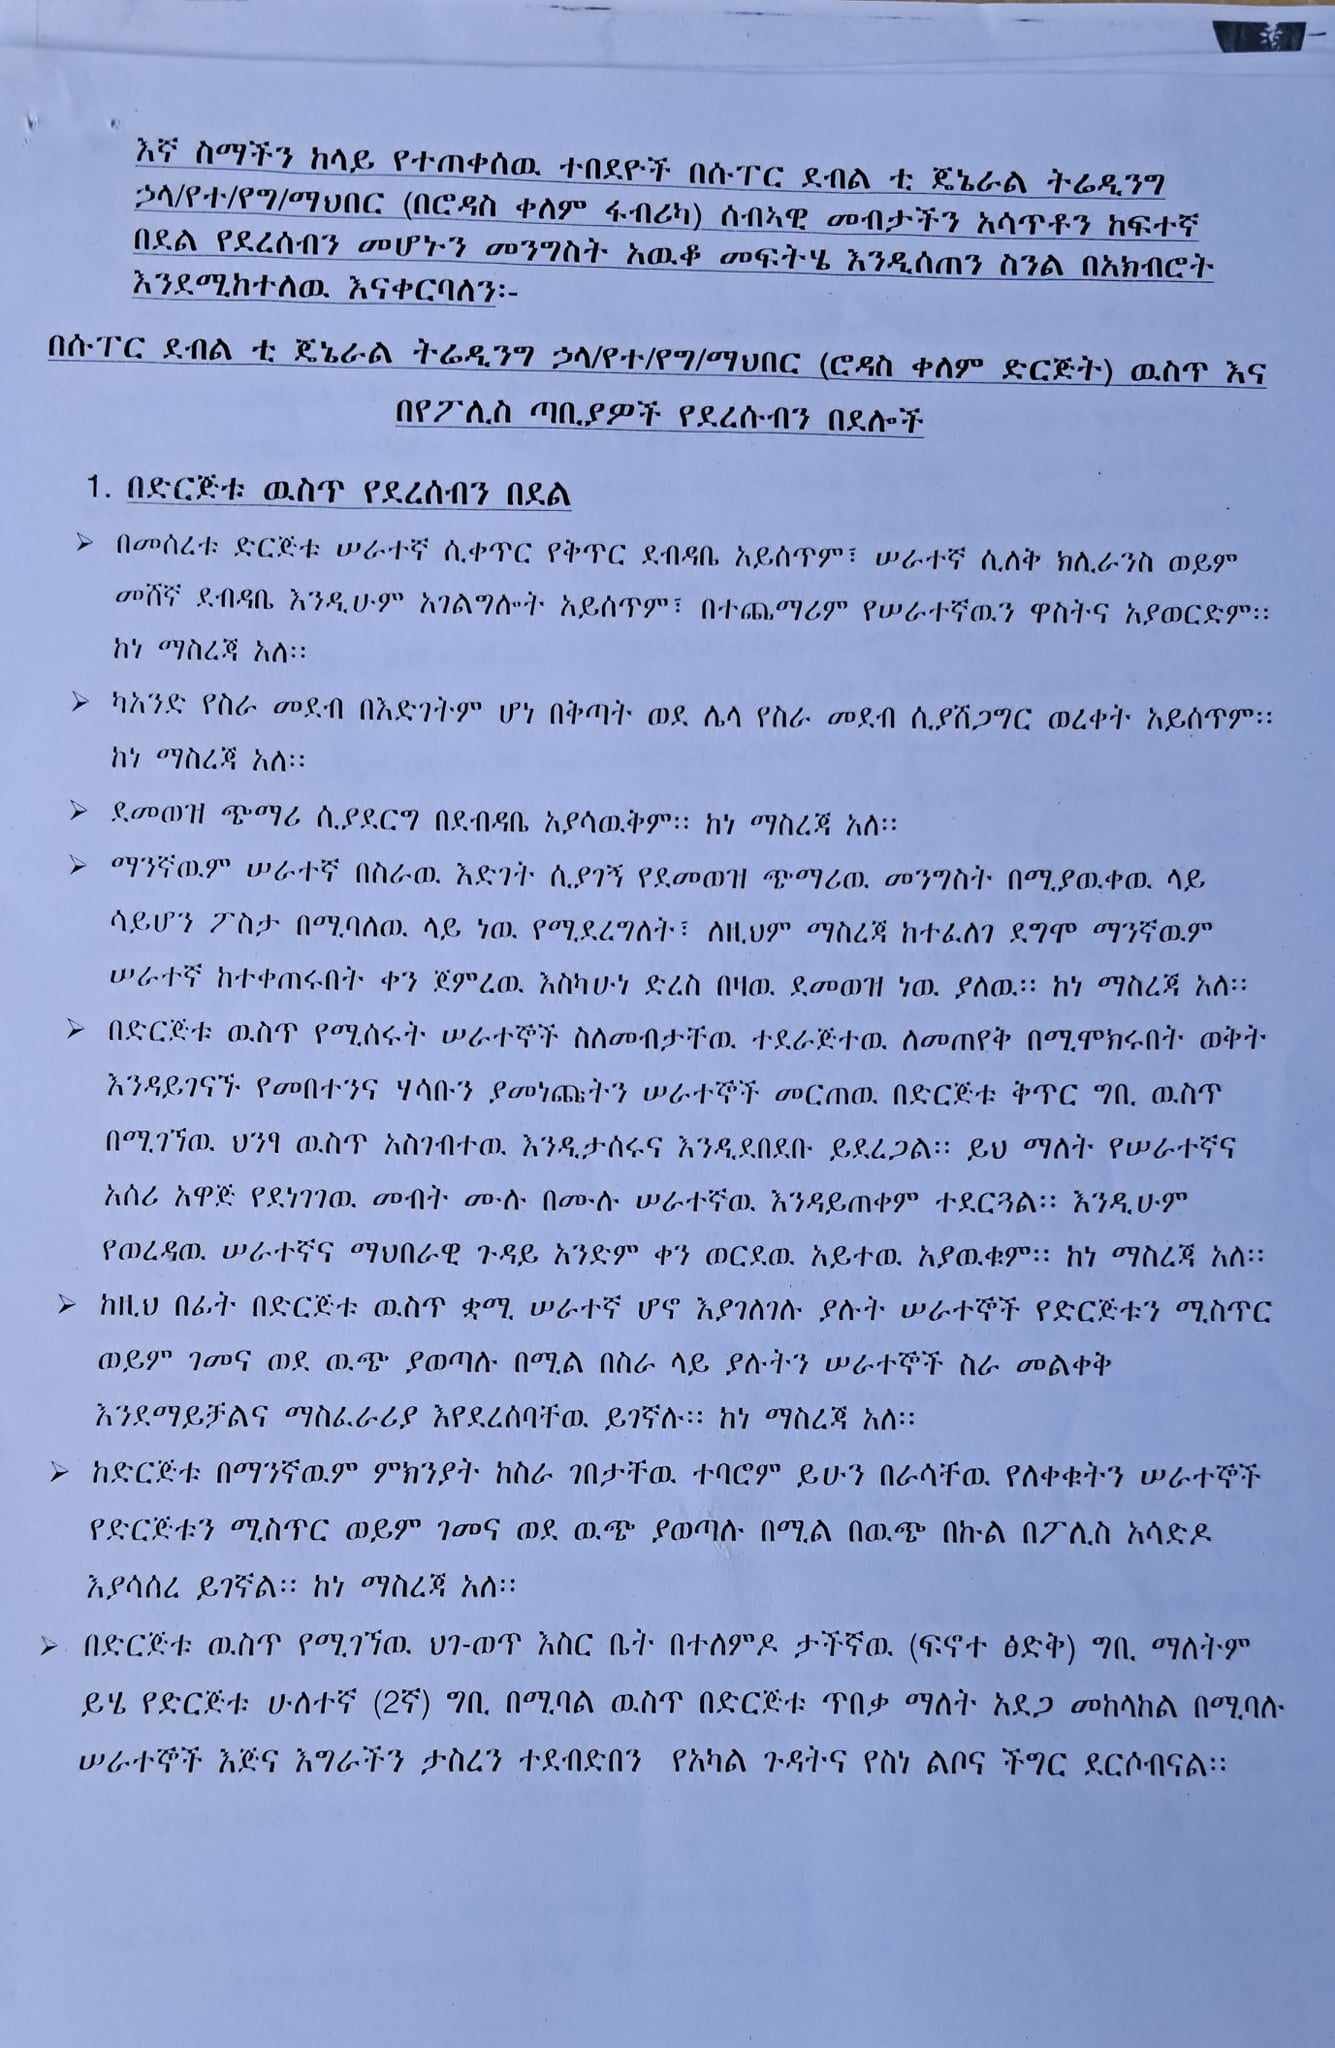 እኛ ስማችን ከላይ የተጠቀሰዉ ተበደዮች በሱፐር ደብል ቲ ጄኔራል ትሬዲንግ
ኃላ/የተ/የግ/ማህበር (በሮዳስ ቀለም ፋብሪካ) ሰብኣዊ መብታችን አሳጥቶን ከፍተኛ
በደል የደረሰብን መሆኑን መንግስት አዉቆ መፍትሄ እንዲሰጠን ስንል በአክብሮት
እንደሚከተለዉ እናቀርባለን፡-
በሱፐር ደብል ቲ ጄኔራል ትሬዲንግ ኃላ/የተ/የግ/ማህበር (ሮዳስ ቀለም ድርጅት) ዉስጥ እና
በየፖሊስ ጣቢያዎች የደረሱብን በደሎች
1. በድርጅቱ ዉስጥ የደረሰብን በደል
➢ በመሰረቱ ድርጅቱ ሠራተኛ ሲቀጥር የቅጥር ደብዳቤ አይሰጥም፣ ሠራተኛ ሲለቅ ክሊራንስ ወይም
መሸኛ ደብዳቤ እንዲሁም አገልግሎት አይሰጥም፣ በተጨማሪም የሠራተኛዉን ዋስትና አያወርድም፡፡
ከነ ማስረጃ አለ፡፡
➢ ካአንድ የስራ መደብ በእድገትም ሆነ በቅጣት ወደ ሌላ የስራ መደብ ሲያሸጋግር ወረቀት አይሰጥም፡፡
ከነ ማስረጃ አለ፡፡
➢ ደመወዝ ጭማሪ ሲያደርግ በደብዳቤ አያሳዉቅም፡፡ ከነ ማስረጃ አለ፡፡
➢ ማንኛዉም ሠራተኛ በስራዉ እድገት ሲያገኝ የደመወዝ ጭማሪዉ መንግስት በሚያዉቀዉ ላይ
ሳይሆን ፖስታ በሚባለዉ ላይ ነዉ የሚደረግለት፣ ለዚህም ማስረጃ ከተፈለገ ደግሞ ማንኛዉም
ሠራተኛ ከተቀጠሩበት ቀን ጀምረዉ እስካሁነ ድረስ በዛዉ ደመወዝ ነዉ ያለዉ፡፡ ከነ ማስረጃ አለ፡፡
➢ በድርጅቱ ዉስጥ የሚሰሩት ሠራተኞች ስለመብታቸዉ ተደራጅተዉ ለመጠየቅ በሚሞክሩበት ወቅት
እንዳይገናኙ የመበተንና ሃሳቡን ያመነጩትን ሠራተኞች መርጠዉ በድርጅቱ ቅጥር ግቢ ዉስጥ
በሚገኘዉ ህንፃ ዉስጥ አስገብተዉ እንዲታሰሩና እንዲደበደቡ ይደረጋል፡፡ ይህ ማለት የሠራተኛና
አሰሪ አዋጅ የደነገገዉ መብት ሙሉ በሙሉ ሠራተኛዉ እንዳይጠቀም ተደርጓል፡፡ እንዲሁም
የወረዳዉ ሠራተኛና ማህበራዊ ጉዳይ አንድም ቀን ወርደዉ አይተዉ አያዉቁም፡፡ ከነ ማስረጃ አለ፡፡
➢ ከዚህ በፊት በድርጅቱ ዉስጥ ቋሚ ሠራተኛ ሆኖ እያገለገሉ ያሉት ሠራተኞች የድርጅቱን ሚስጥር
ወይም ገመና ወደ ዉጭ ያወጣሉ በሚል በስራ ላይ ያሉትን ሠራተኞች ስራ መልቀቅ
እንደማይቻልና ማስፈራሪያ እየደረሰባቸዉ ይገኛሉ፡፡ ከነ ማስረጃ አለ፡፡
➢ ከድርጅቱ በማንኛዉም ምክንያት ከስራ ገበታቸዉ ተባሮም ይሁን በራሳቸዉ የለቀቁትን ሠራተኞች
የድርጅቱን ሚስጥር ወይም ገመና ወደ ዉጭ ያወጣሉ በሚል በዉጭ በኩል በፖሊስ አሳድዶ
እያሳሰረ ይገኛል፡፡ ከነ ማስረጃ አለ፡፡
➢ በድርጅቱ ዉስጥ የሚገኘዉ ህገ-ወጥ እስር ቤት በተለምዶ ታችኛዉ (ፍኖተ ፅድቅ) ግቢ ማለትም
ይሄ የድርጅቱ ሁለተኛ (2ኛ) ግቢ በሚባል ዉስጥ በድርጅቱ ጥበቃ ማለት አደጋ መከላከል በሚባሉ
ሠራተኞች እጅና እግራችን ታስረን ተደብድበን የአካል ጉዳትና የስነ ልቦና ችግር ደርሶብናል፡፡